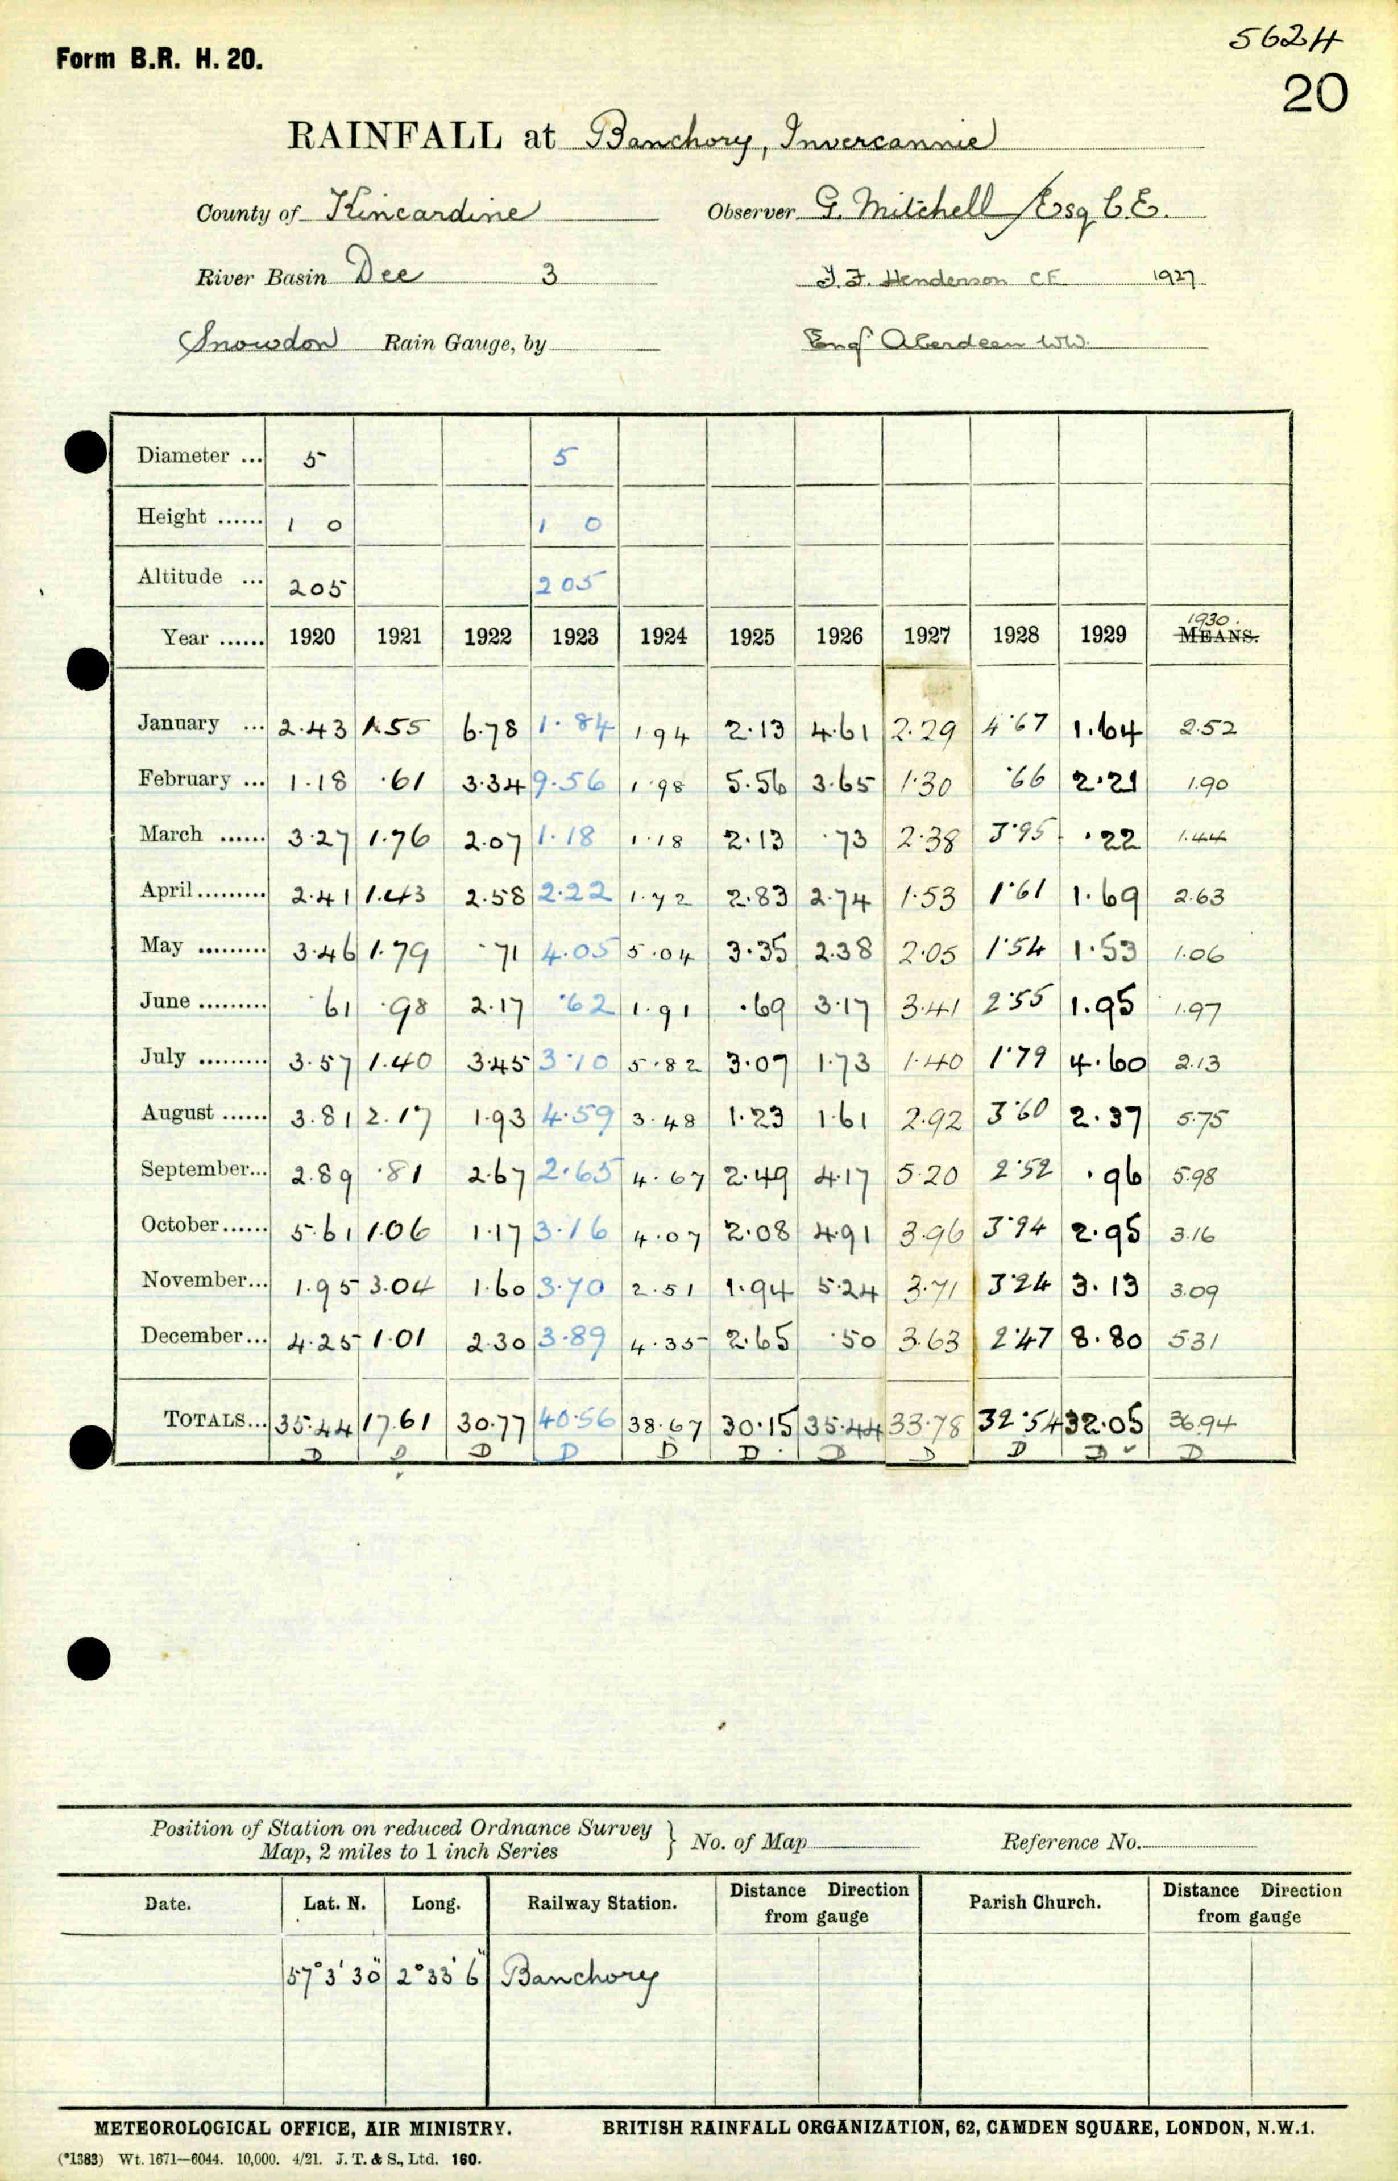 5624
Form B.R. H. 20.
20
RAINFALL at Banchory, Invercannie
County of Kincardine Observer G. Mitchell Esq C.E.
River Basin Dee 3 J. F. Henderson CE 1927
Snowdon Rain Gauge, by Engr Aberdeen WW.
Diameter ... 5 5
Height ...... 1 0 1 0
Altitude ... 205 205
1930.
Year ...... 1920 1921 1922 1923 1924 1925 1926 1927 1928 1929 MEANS.
January ... 2.43 1.55 6.78 1.84 1.94 2.13 4.61 2.29 4.67 1.64 2.52
February ... 1.18 .61 3.34 9.56 1.98 5.56 3.65 1.30 .66 2.21 1.90
March ...... 3.27 1.76 2.07 1.18 1.18 2.13 .73 2.38 3.95 .22 1.44
April ......... 2.41 1.43 2.58 2.22 1.72 2.83 2.74 1.53 1.61 1.69 2.63
May ......... 3.46 1.79 .71 4.05 5.04 3.35 2.38 2.05 1.54 1.53 1.06
June ......... .61 .98 2.17 .62 1.91 .69 3.17 3.41 2.55 1.95 1.97
July ......... 3.57 1.40 3.45 3.10 5.82 3.07 1.73 1.40 1.79 4.60 2.13
August ...... 3.81 2.17 1.93 4.59 3.48 1.23 1.61 2.92 3.60 2.37 5.75
September... 2.89 .81 2.67 2.65 4.67 2.49 4.17 5.20 2.52 .96 5.98
October...... 5.61 1.06 1.17 3.16 4.07 2.08 4.91 3.96 3.94 2.95 3.16
November... 1.95 3.04 1.60 3.70 2.51 1.94 5.24 3.71 3.24 3.13 3.09
December... 4.25 1.01 2.30 3.89 4.35 2.65 .50 3.63 2.47 8.80 5.31
TOTALS... 35.44 17.61 30.77 40.56 38.67 30.15 35.44 33.78 32.54 32.05 36.94
D D D D D D D D D D D
Position of Station on reduced Ordnance Survey
Map, 2 miles to 1 inch Series } No. of Map Reference No.
Date. Lat. N. Long. Railway Station. Distance Direction from gauge Parish Church. Distance Direction from gauge
57° 3' 30" 2° 33' 6" Banchory
METEOROLOGICAL OFFICE, AIR MINISTRY. BRITISH RAINFALL ORGANIZATION, 62, CAMDEN SQUARE, LONDON, N.W.1.
(*1383) Wt. 1671—6044. 10,000. 4/21. J. T. & S., Ltd. 160.